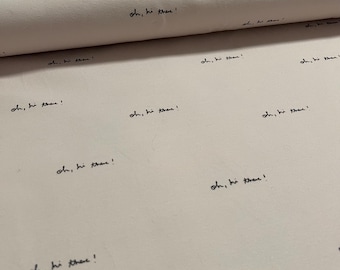 oh, hi there!
oh, hi there!
oh, hi there!
oh, hi there!
oh, hi there!
oh, hi there!
oh, hi there!
oh, hi there!
oh, hi there!
oh, hi there!